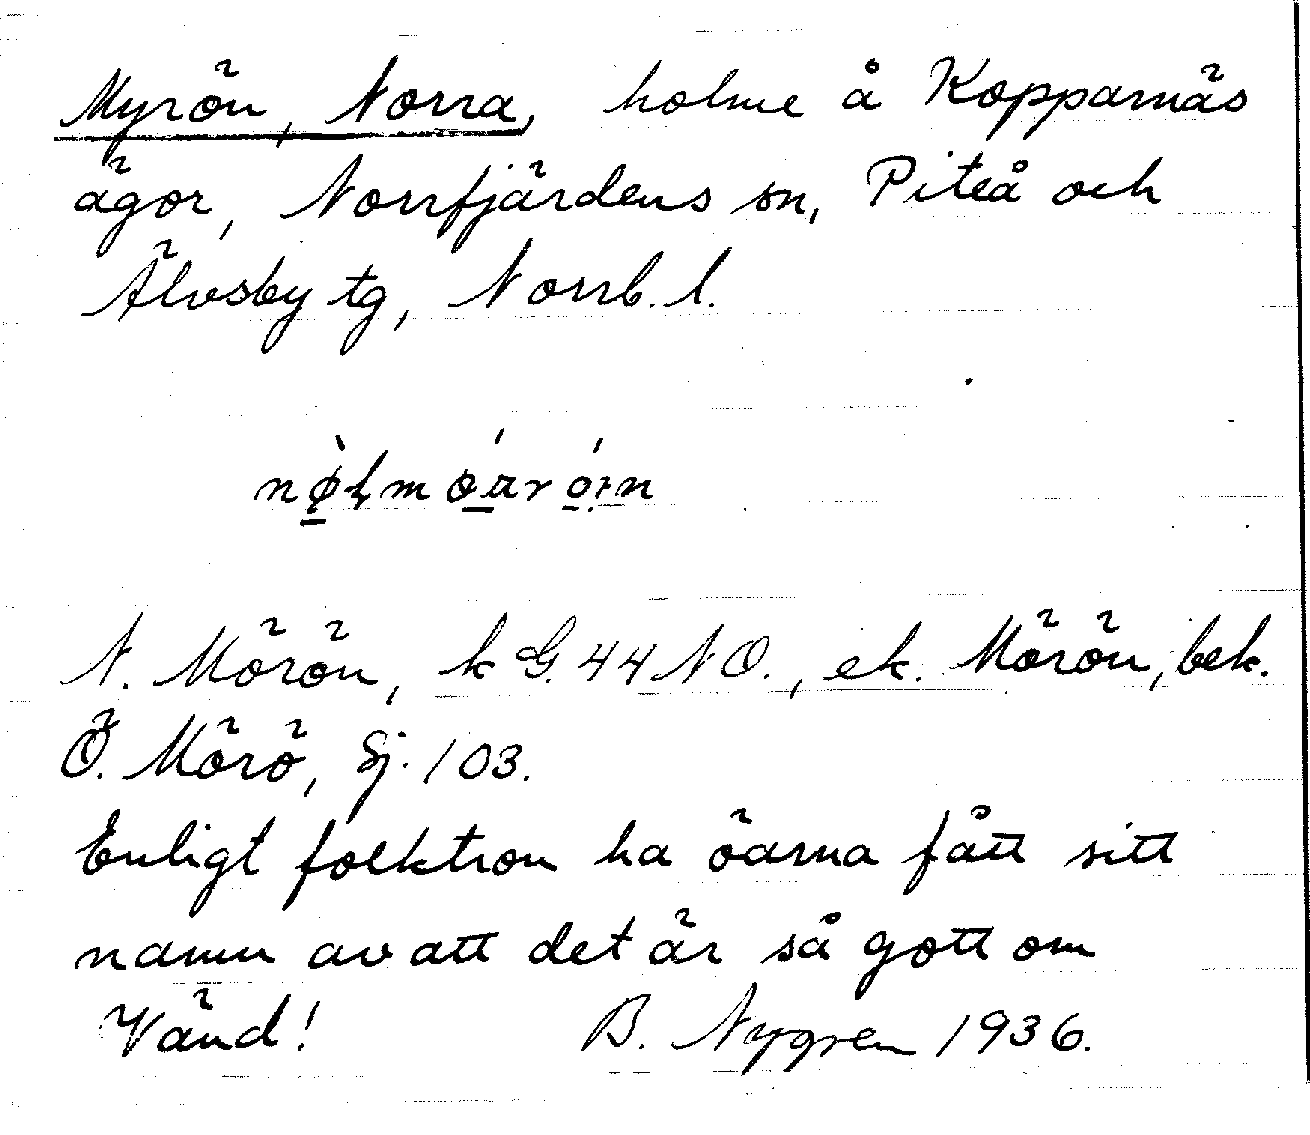 Myrön, Norra, holme å Kopparnäs
ägor, Norrfjärdens sn, Piteå och
Älvsby tg, Norrb. l.
N. Mörön, k G. 44 NO., ek. Mörön, bek.
Ö. Mörö, Sj. 103.
Enligt folktron ha öarna fått sitt
namn av att det är så gott om
Vänd! B. Nygren 1936.